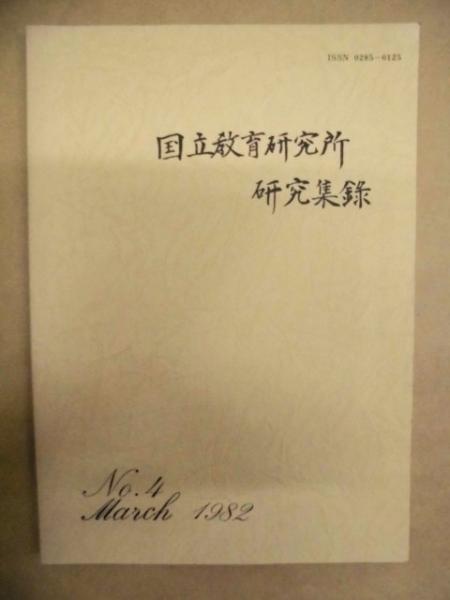 ISSN 0285-0125
国立教育研究所
研究集録
No.4
March 1982